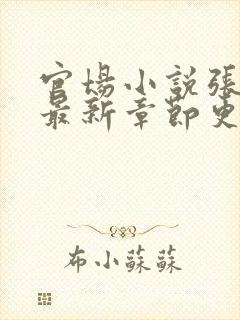 官場小説張
最新章節更
布小蘇蘇